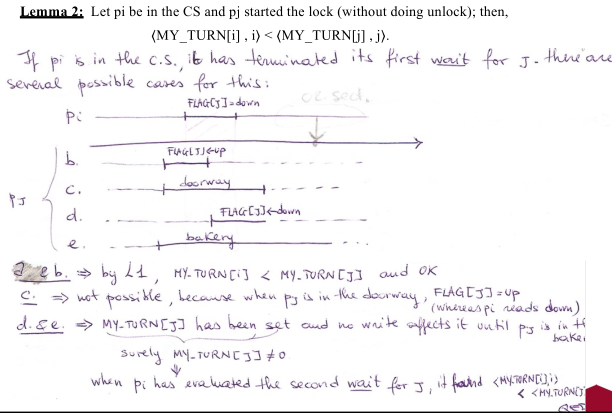 Lemma 2: Let pi be in the CS and pj started the lock (without doing unlock); then,
⟨MY_TURN[i] , i⟩ < ⟨MY_TURN[j] , j⟩.
If pi is in the C.S., it has terminated its first wait for J. there are
several possible cases for this:
FLAG[J]=down
pi
b. FLAG[J]←up
c. doorway
pJ
d. FLAG[J]←down
e. bakery
b. ⇒ by L1, MY-TURN[i] < MY-TURN[J] and OK
c. ⇒ not possible, because when pj is in the doorway, FLAG[J]=up
(whereas pi reads down)
d. & e. ⇒ MY-TURN[J] has been set and no write affects it until pj is in
surely MY-TURN[J] ≠ 0
when pi has evaluated the second wait for J, it found <MY.TURN[i],i>
< <MY.TURN[J]
QED